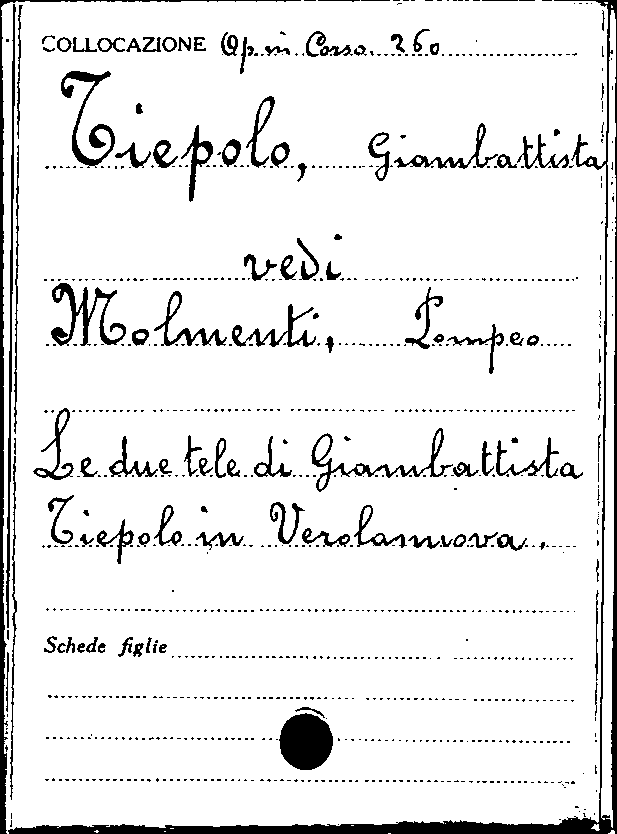 COLLOCAZIONE Op. in Corso. 260
Tiepolo, Giambattista
vedi
Molmenti, Pompeo
Le due tele di Giambattista
Tiepolo in Verolanuova.
Schede figlie